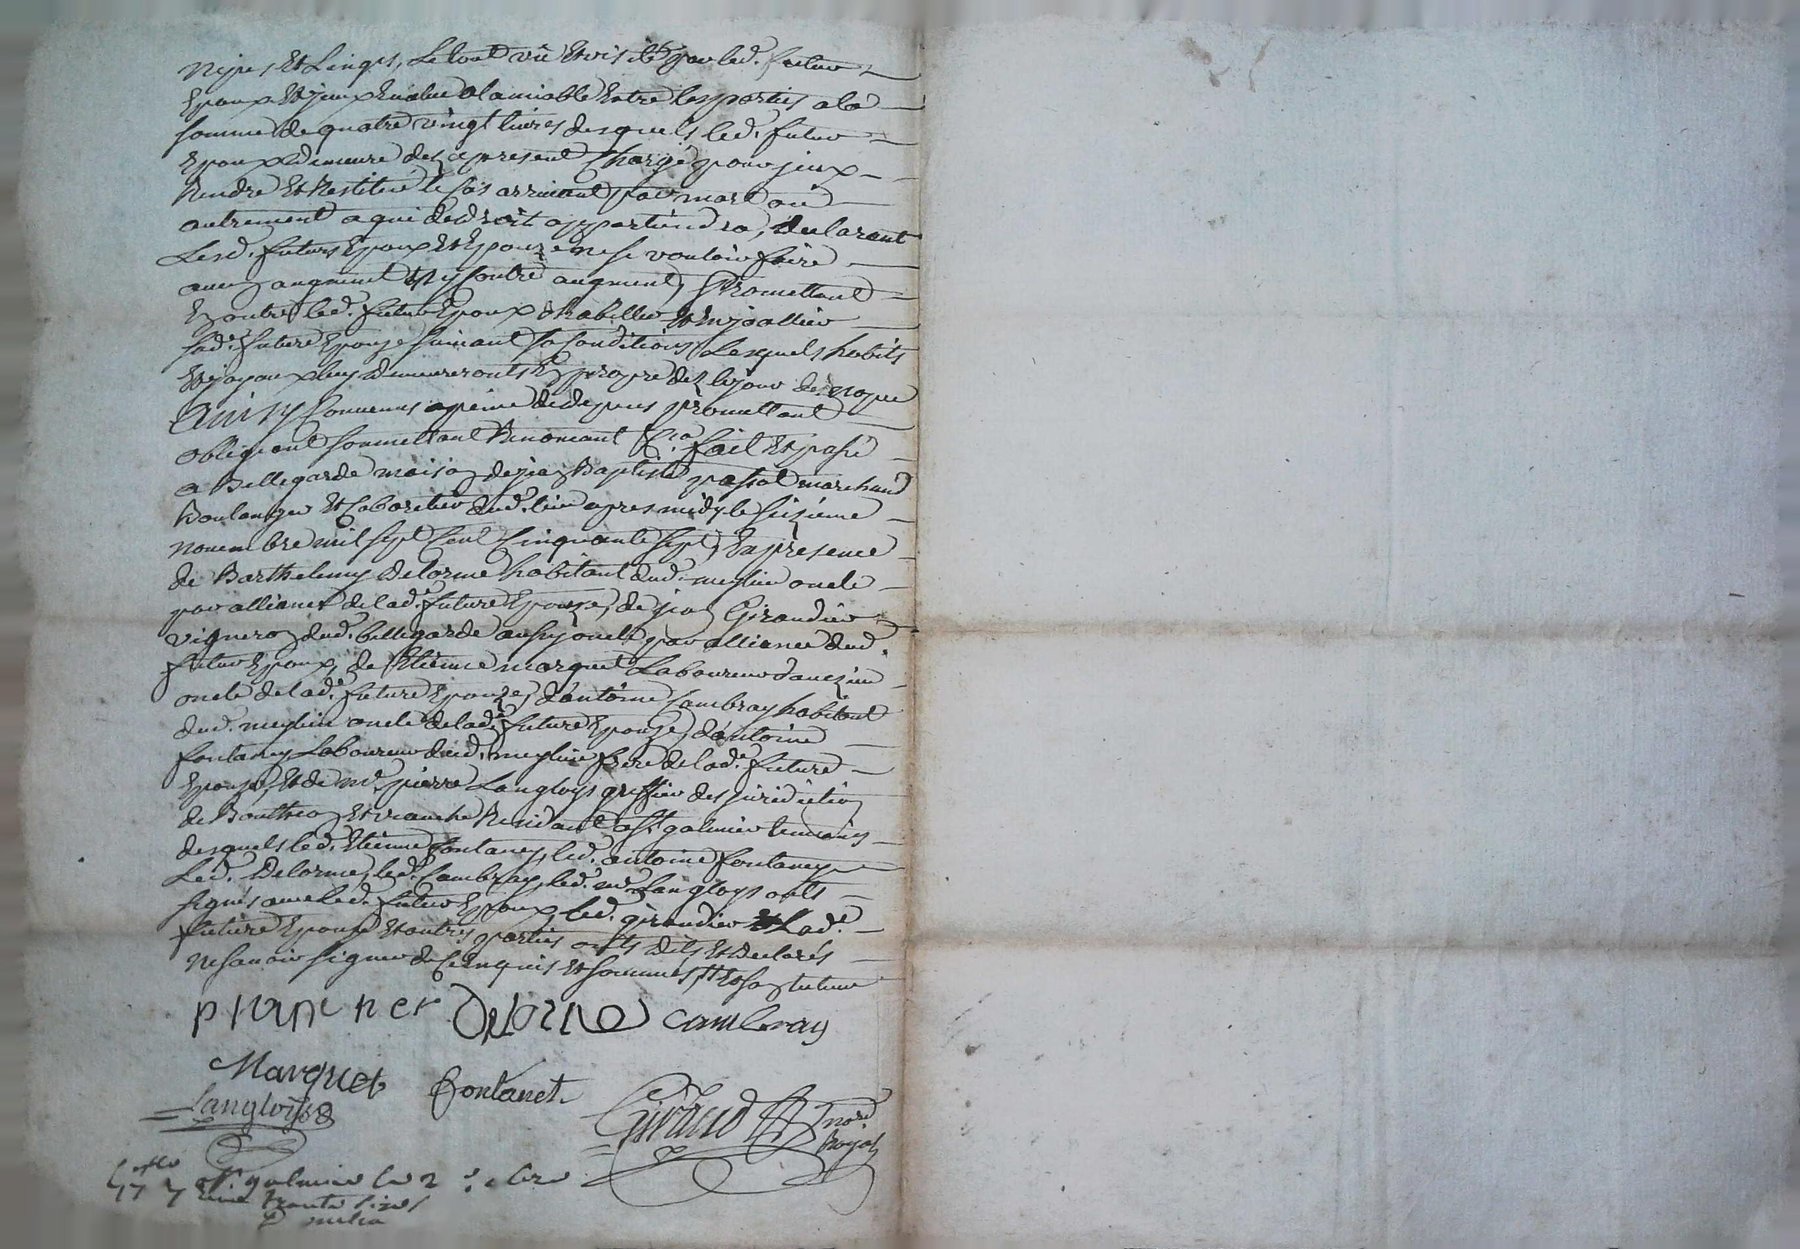 nipes et Linges, Le tout vû et visité par led. futur
Epoux et jceux Evalué a lamiable Entre les parties a la
somme de quatre vingt livres desquels led. futur
Epoux demeure dez apresent Chargé pour jceux
Rendre et Restitué le cas arrivant par mort où
autrement a qui de droit appartiendra, declarant
Lesd. futurs Epoux et Epouze ne se vouloir faire
aucuns augment ny contre augment, Promettant
En outre led. futur Epoux dhabiller et Enjoallier
sad.e future Epouze suivant sa Condition, Lesquels habits
et joyaux luy demeureronts En propre dez le jour de nopce
Ainsy Convenus a peine de depens promettant
obligeant soumettant Renoncant &.ca fait et passé
a Bellegarde maison de jean Baptiste pascal marchand
Boulanger et Cabaretier dud. lieu apres midy le seizième
novembre mil sept Cent Cinquante sept, En presence
de Barthelemy Delorme habitant dud. meylieu oncle
par alliance de lad.e future Epouze, de jean Giraudier
vigneron dud. bellegarde aussy oncle par alliance dud.
futur Epoux, de Etienne marquet Laboureur d'aveizieu
oncle de lad.e future Epouze, d'antoine Cambray habitant
dud. meylieu oncle de lad.e future Epouze, d'antoine
fontaney Laboureur dud. meylieu frere de lad.e future
Epouze, et de m.e pierre Langloys greffier des juridictions
de Bouthéon et veauche Residant a S.t galmier temoins
desquels led. Etienne fontaney, led. antoine fontaney
Led. Delorme, led. Cambray, led. m.e Langloys onts
signés avec led. futur Epoux, led. giraudier et Lad.e
future Epouse et autres parties onts dits et declarés
ne scavoir signer de ce Enquis et sommés
plancher Delorme cambray
Marquet fontanet
Langloys
Giraud no.re
Royal
S.t galmier le 2
trente